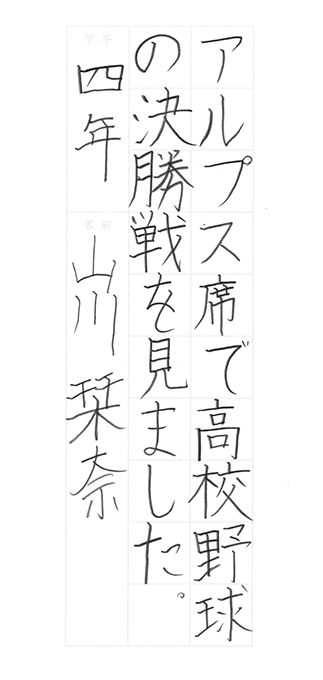 アルプス席で高校野球
の決勝戦を見ました。
学年
四年
名前
山川栞奈